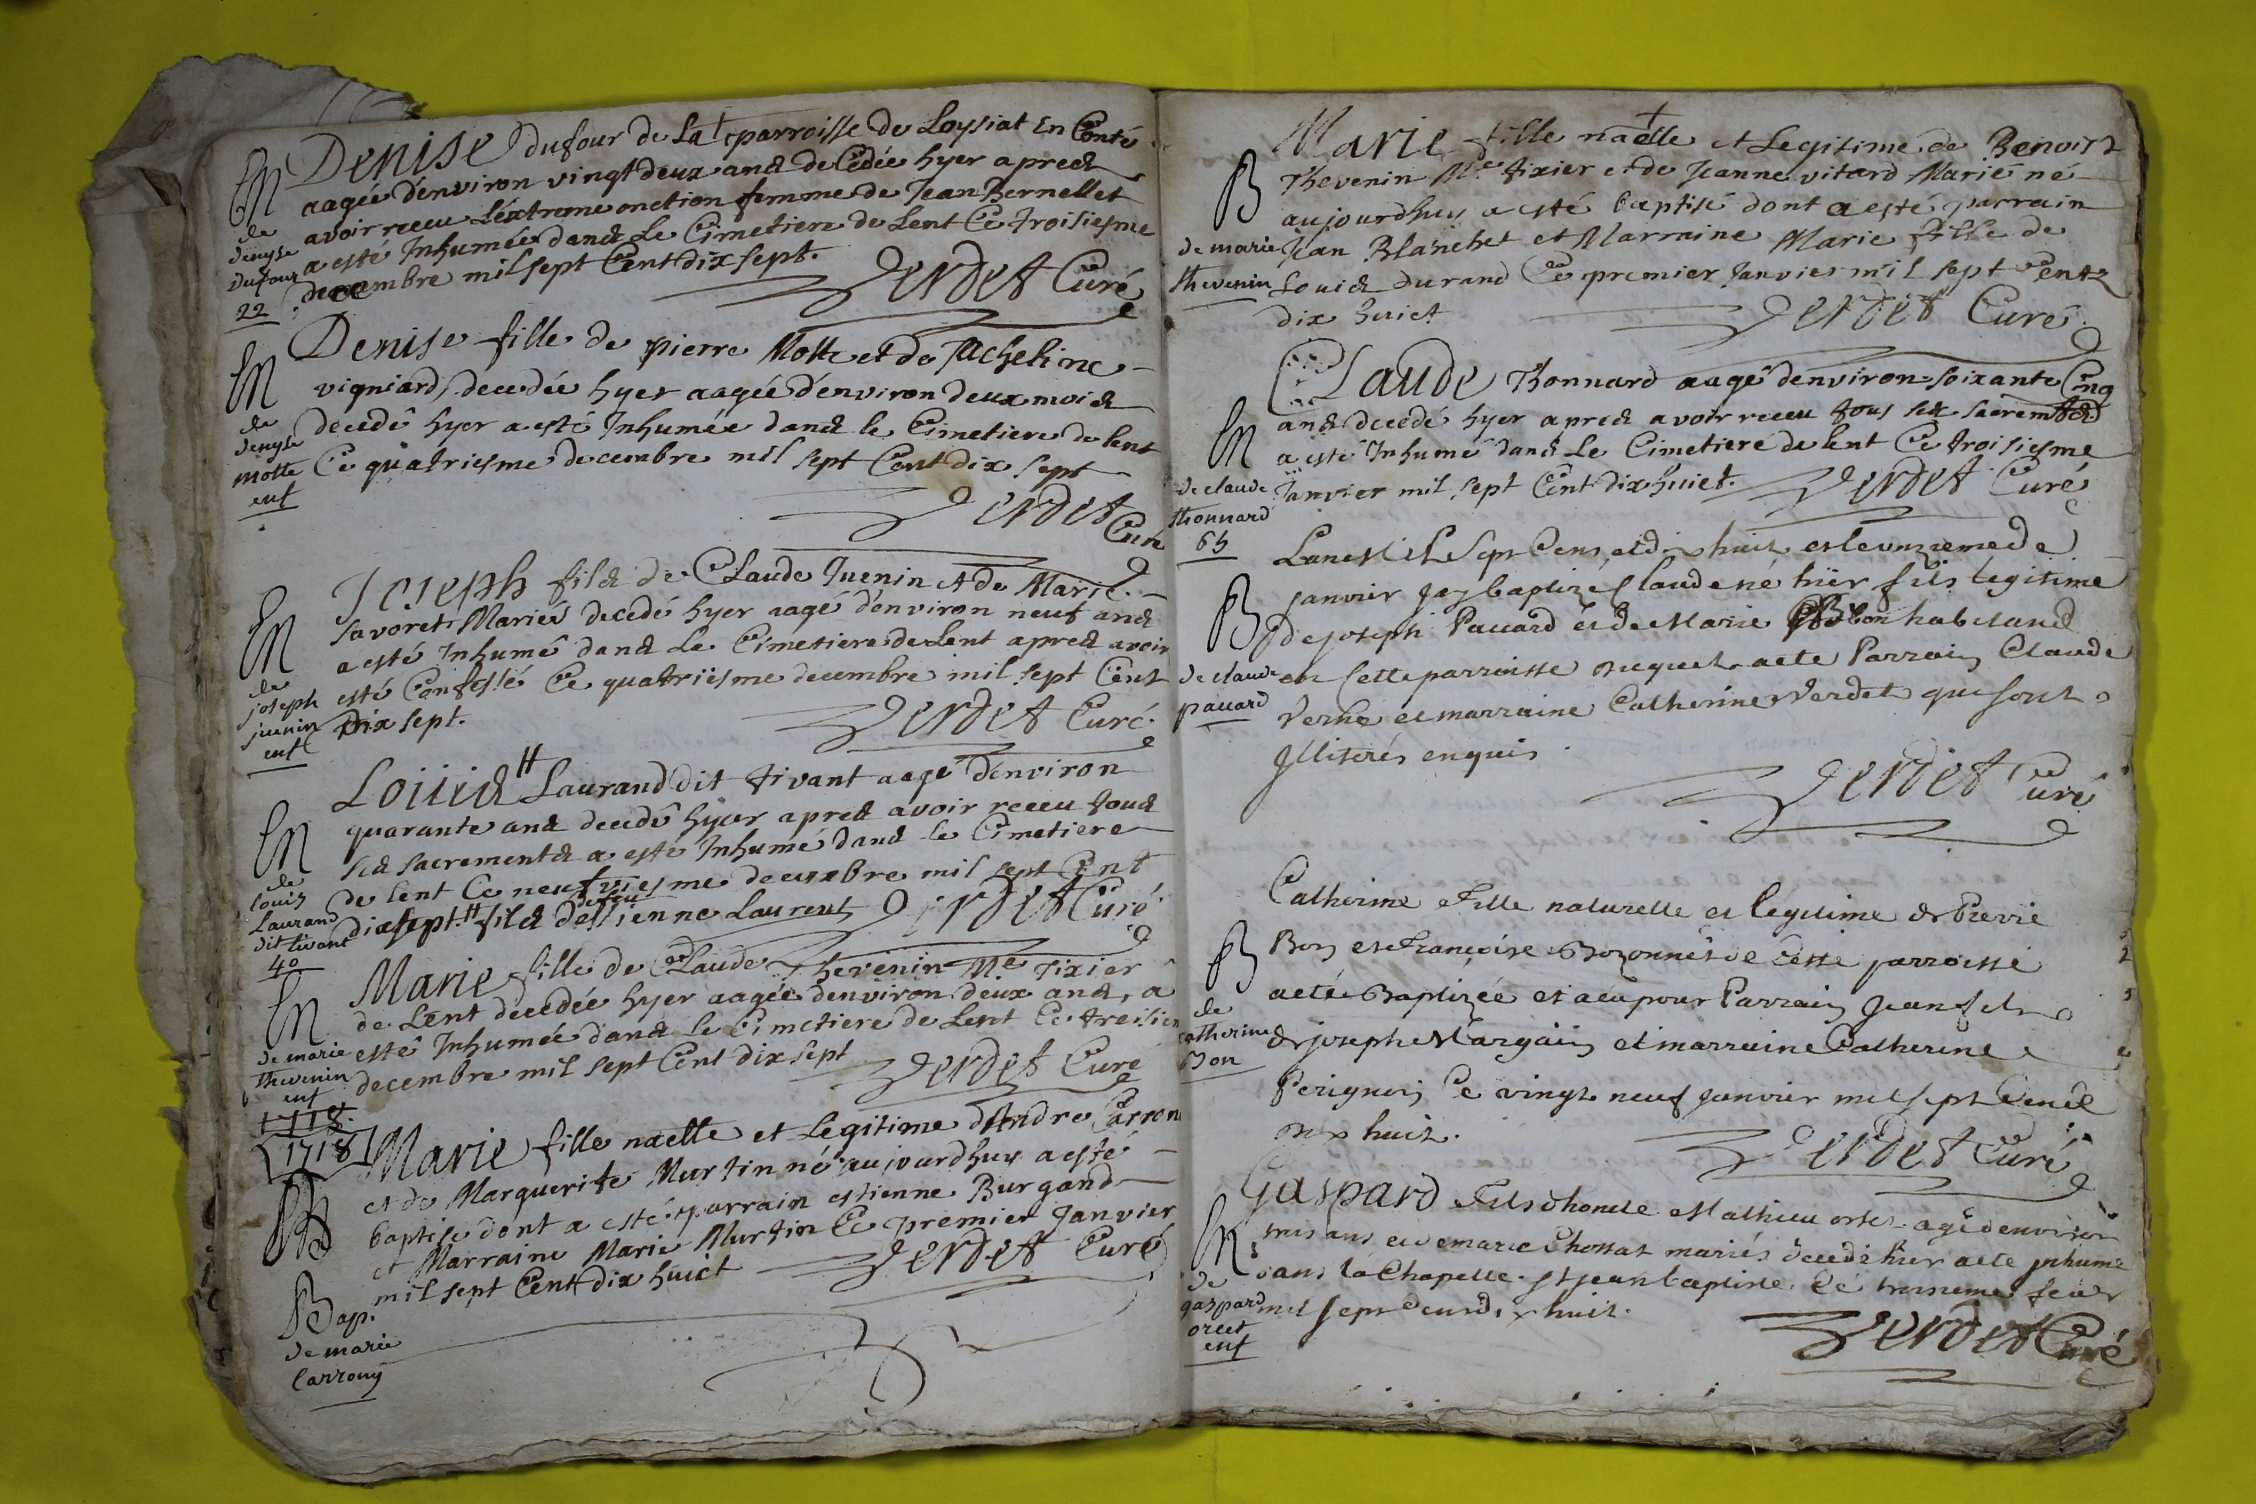 Denise dufour de La parroisse de Loysiat En Conté
aagée d'environ vingt deux ans decedée hyer apres
avoir receu L'extreme onction femme de Jean Bernellet
a esté Inhumée dans Le Cimetiere de Lent Ce troisiesme
decembre mil sept Cent dix sept.
Verdet Curé
En
de
denyse
Dufour
22
Denise fille de pierre Motte et de Jacqueline
vigniard, decedée hyer aagée d'environ deux mois
decedé hyer a esté Inhumée dans le Cimetiere de lent
Ce quatriesme decembre mil sept Cent dix sept
Verdet
Curé
En
de
denyse
motte
enf
Joseph fils de Claude Juenin et de Marie
Savoret Mariés decedé hyer aagé d'environ neuf ans
a esté Inhumé dans Le Cimetiere de Lent apres avoir
esté Confessé Ce quatriesme decembre mil sept Cent
Dix sept.
Verdet Curé.
En
de
joseph
juenin
enf
Loüis # Laurand dit tivant aagé d'environ
quarante ans decedé hyer apres avoir receu tous
ses sacrements a esté Inhumé dans le Cimetiere
de lent Ce neufviesme decembre mil sept Cent
dix sept. # fils de feu estienne Laurent Verdet Curé
En
de
louis
Laurand
dit tivant
40
Marie fille de Claude Thevenin Me Tixier
de Lent decedée hyer aagée d'environ deux ans, a
esté Inhumée dans le Cimetiere de Lent Ce treisiem
decembre mil sept Cent dix sept
Verdet Curé
En
de marie
thevenin
enf
1718.
1718
Marie fille naelle et Legitime d'Andre Carron
et de Marguerite Murtin né aujourdhuy a esté
baptise dont a esté parrain estienne Burgand
et Marraine Marie Murtin Ce premier Janvier
mil sept Cent dix huict
Verdet Curé
B
Bap.
de marie
Carrony
Marie fille naelle et Legitime de Benoist
Thevenin Me tixier et de Jeanne vitard Marie né
aujourdhuy a esté baptisé dont a esté parrain
Jean Blanchet et Marraine Marie fille de
Louis Durand Ce premier Janvier mil sept Cent
dix huict
Verdet Curé
B
de marie
thevenin
Claude Thonnard aagé d'environ soixante Cinq
ans decedé hyer apres avoir receu tous ses sacremts
a esté Inhumé dans Le Cimetiere de lent Ce troisiesme
Janvier mil sept Cent dix huict.
Verdet Curé
En
de claude
thonnard
65
Lan Mil Sept Cens et dix huit et le unzieme de
janvier jay baptizé Claude né hier fils legitime
de joseph Pauard et de Marie Bon habitand
en Cette parroisse auquel a ete Parrain Claude
Verne et marraine Catherine Verdet qui sont
Illiterés enquis.
Verdet Curé
B
de claude
pauard
Catherine Fille naturelle et legitime de Pierre
Bon et Françoise Bozonnet de cette parroisse
a eté Baptizée et a eu pour Parrain Jean fils
de joseph Margain et marraine Catherine
Perignon, Ce vingt neuf janvier mil sept Cend
dix huit.
Verdet Curé
B
de
catherine
Bon
Gaspard Fils d'honete Mathieu orset agé d'environ
trois ans et de marie Chossat mariés decedé hier a eté inhumé
dans la Chapelle St jean baptiste Ce troisieme fevr
mil sept Cend dix huit.
Verdet Curé
En
de
gaspard
orcet
enf